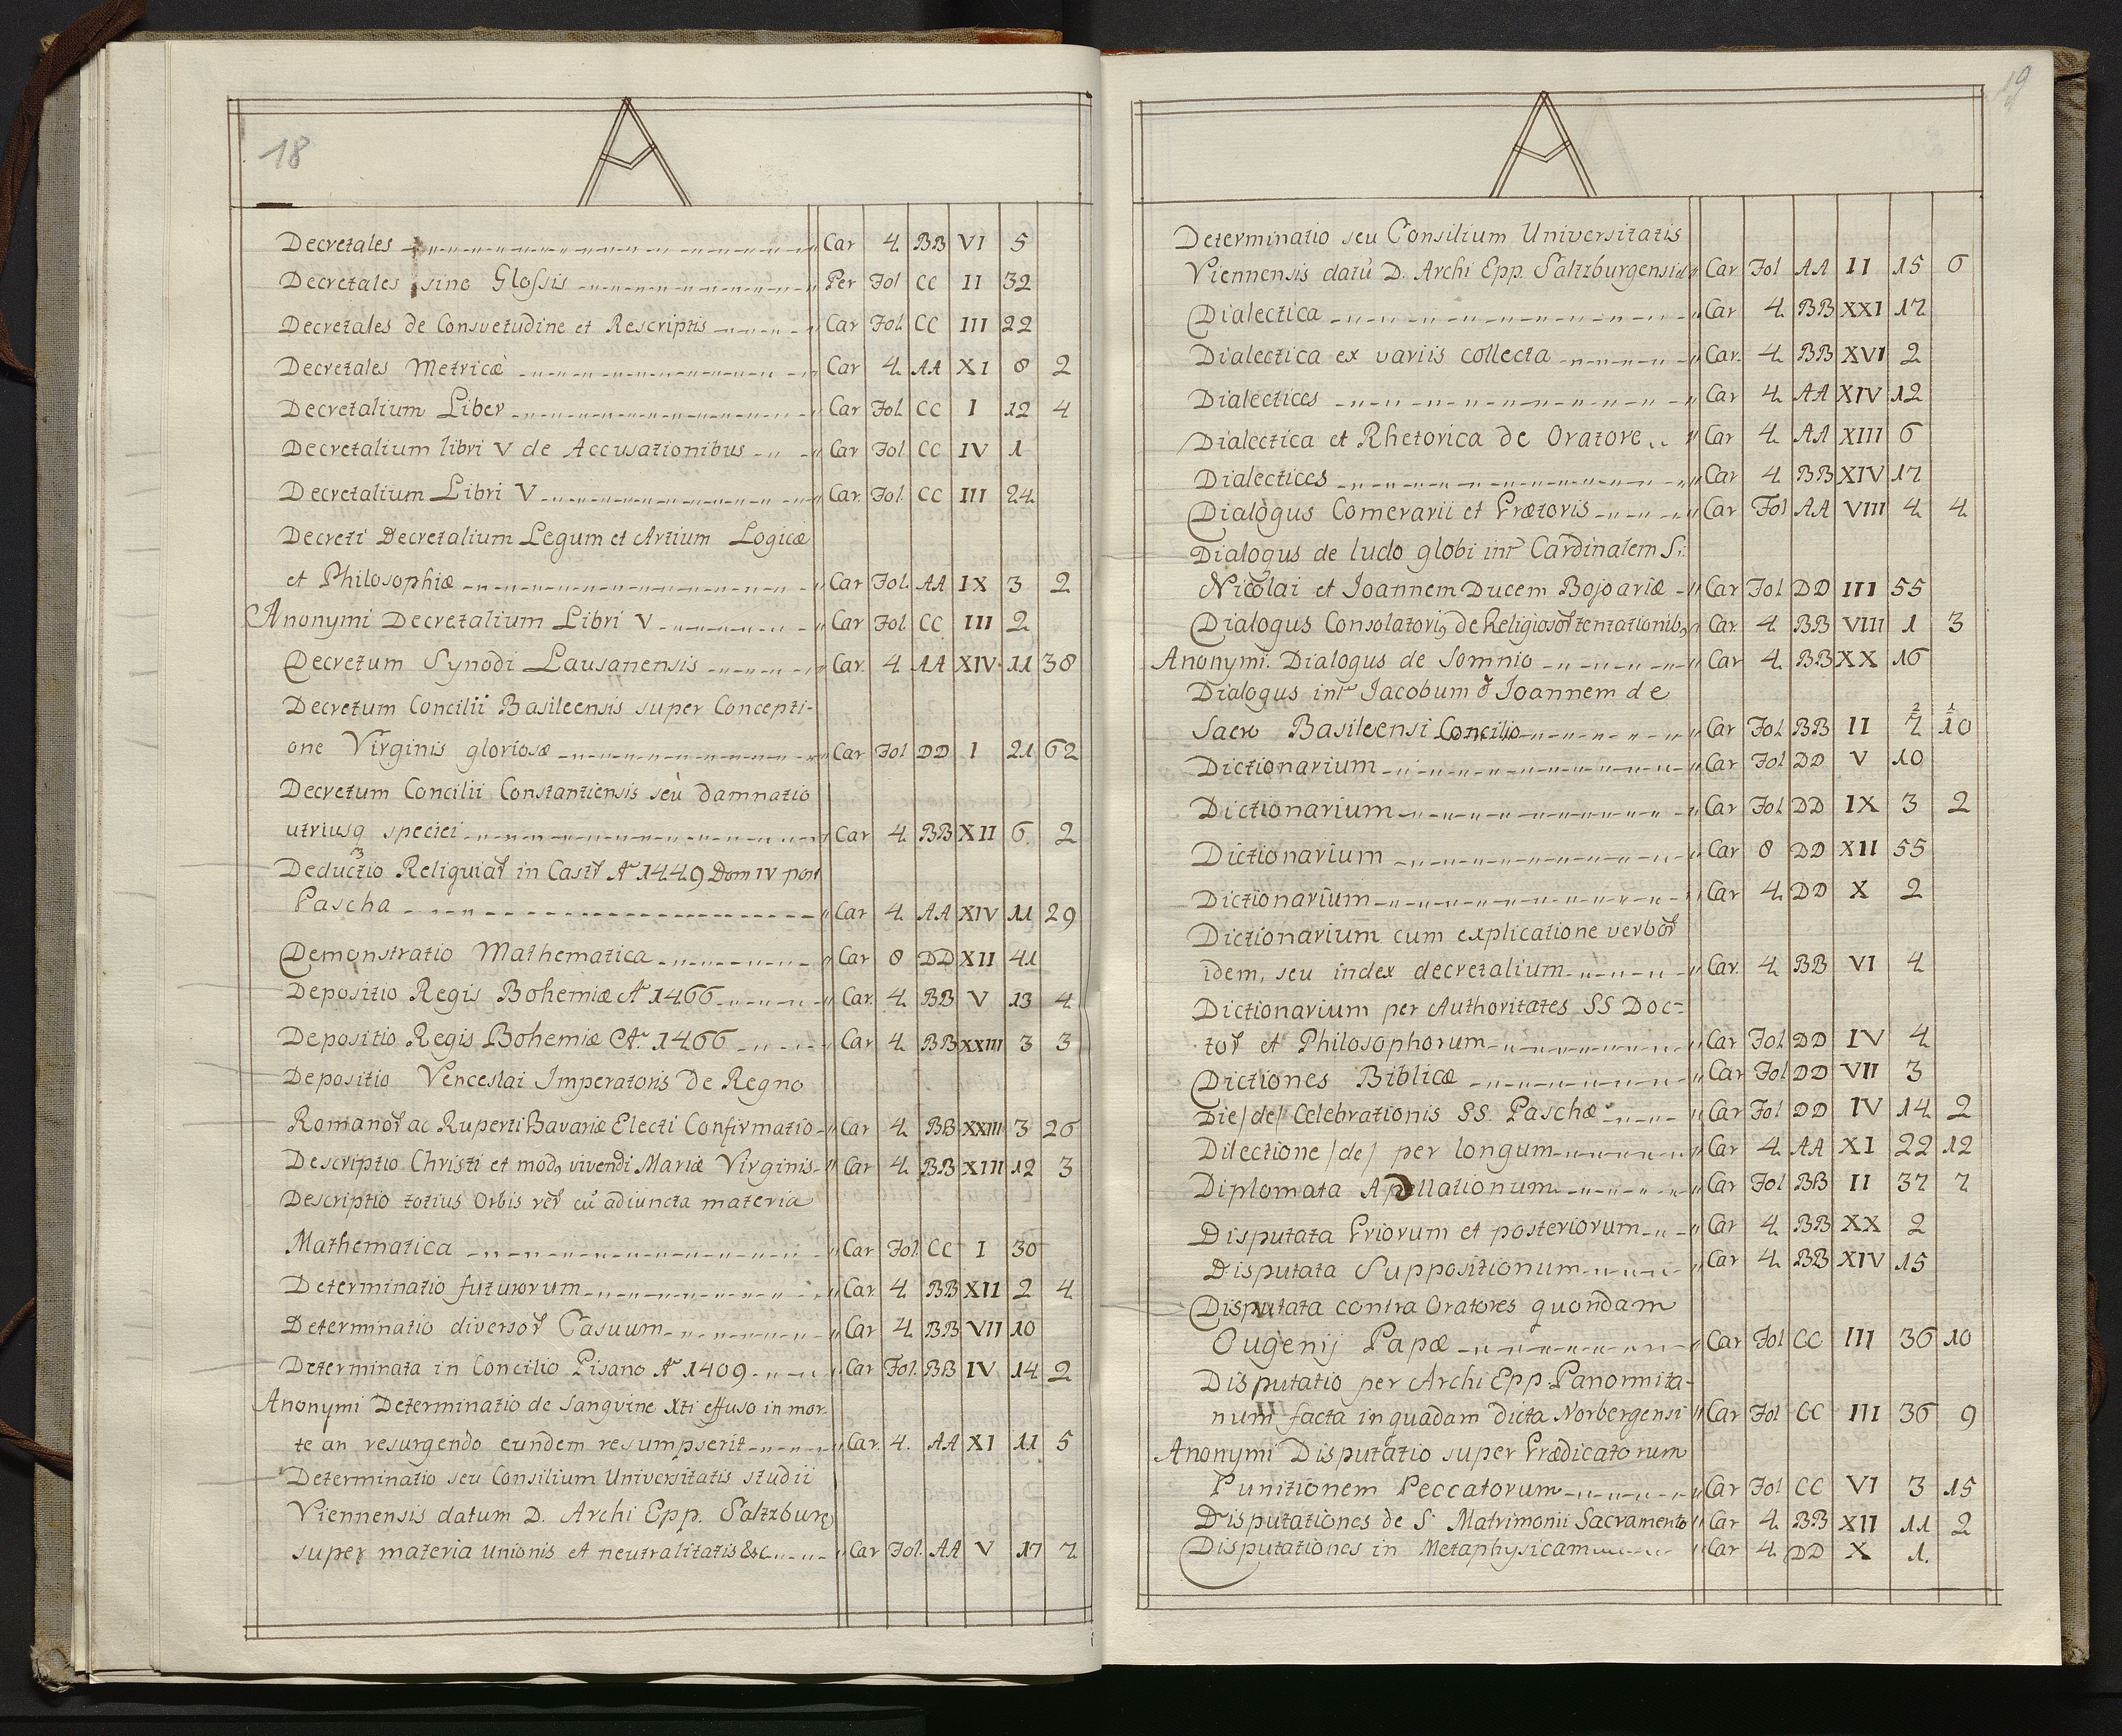 18
A
Decretales Car 4. BB VI 5
Decretales sine Glossis Per Fol CC II 32
Decretales de Consvetudine et Rescriptis Car Fol. CC III 22
Decretales Metricæ Car 4. AA XI 8 2
Decretalium Liber Car Fol. CC I 12 4
Decretalium libri V de Accusationibus Car Fol CC IV 1
Decretalium Libri V Car. Fol. CC III 24.
Decreti Decretalium Legum et Artium Logicæ
et Philosophiæ Car Fol. AA IX 3 2
Anonymi Decretalium Libri V Car Fol CC III 2
Decretum Synodi Lausanensis Car. 4. AA XIV. 11 38
Decretum Concilii Basileensis super Concepti-
one Virginis gloriosæ Car Fol DD I 21 62
Decretum Concilii Constantiensis seù damnatio
utriusq speciei Car 4. BB XII 6. 2
Deductio Reliquiar in Castr Aº 1449 Dom IV post
Pascha Car 4 AA XIV 11 29
Demonstratio Mathematica Car 8 DD XII 41
Depositio Regis Bohemiæ Aº 1466 Car. 4. BB V 13 4
Depositio Regis Bohemiæ Aº. 1466 Car 4. BB XXIII 3 3
Depositio Venceslai Imperatoris De Regno
Romanor ac Ruperti Bavariæ Electi Confirmatio Car 4. BB XXIII 3 26
Descriptio Christi et modq vivendi Mariæ Virginis Car 4. BB XIII 12 3
Descriptio totius Orbis rer cū adiuncta materia
Mathematica Car Fol. CC I 30
Determinatio futurorum Car 4. BB XII 2 4
Determinatio diversor Casuum Car 4. BB VII 10
Determinata in Concilio Pisano Aº 1409 Car Fol. BB IV 14 2
Anonymi Determinatio de Sangvine Xti effuso in mor-
te an resurgendo eundem resumpserit Car. 4. AA XI 11 5
Determinatio seu Consilium Universitatis studii
Viennensis datum D. Archi Epp. Saltzburg
super materia unionis et neutralitatis &c. Car Fol. AA V 17 7
19
A
Determinatio seu Consilium Universitatis
Viennensis datū D. Archi Epp. Saltzburgensi Car Fol AA II 15 6
Dialectica Car 4. BB XXI 17
Dialectica ex variis collecta Car. 4. BB XVI 2
Dialectices Car 4. AA XIV 12
Dialectica et Rhetorica de Oratore Car 4. AA XIII 6
Dialectices Car 4. BB XIV 17
Dialogus Comerarii et Prætoris Car Fol AA VIII 4. 4.
Dialogus de ludo globi int Cardinalem S:
Nicolai et Joannem Ducem Bojoariæ Car Fol DD III 55
Dialogus Consolatoriq de Religiosor tentationibq Car. 4. BB VIII 1 3
Anonymi. Dialogus de Somnio Car 4. BB XX 16
Dialogus int Jacobum & Joannem de
Sacro Basileensi Concilio Car Fol BB II 7 10
Dictionarium Car Fol DD V 10
Dictionarium Car Fol DD IX 3 2
Dictionarium Car 8 DD XII 55
Dictionarium Car 4. DD X 2
Dictionarium cum explicatione verbor
idem, seu index decretalium Car. 4. BB VI 4
Dictionarium per Authoritates SS Doc=
tor et Philosophorum Car Fol DD IV 4
Dictiones Biblicæ Car Fol DD VII 3
Die /de/ Celebrationis SS. Paschæ Car Fol DD IV 14 2
Dilectione /de/ per longum Car 4. AA XI 22 12
Diplomata Apellationum Car Fol BB II 37 7
Disputata Priorum et posteriorum Car 4. BB XX 2
Disputata Suppositionum Car 4. BB XIV 15
Disputata contra Oratores quondam
Eugenij Papæ Car Fol CC III 36 10
Disputatio per Archi Epp. Panormita-
num facta in quadam dicta Norbergensi Car Fol CC III 36 9
Anonymi Disputatio super Prædicatorum
Punitionem Peccatorum Car Fol CC VI 3 15
Disputationes de S. Matrimonii Sacramento Car 4. BB XII 11 2
Disputationes in Metaphysicam Car 4. DD X 1.